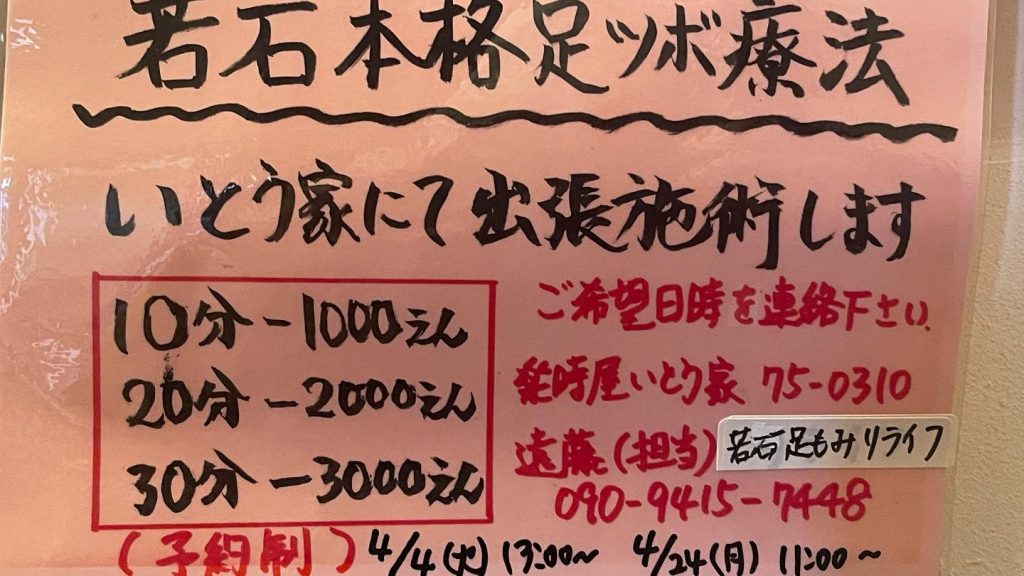 若石本格足ツボ療法
いとう家にて出張施術します
10分－1000えん
20分－2000えん
30分－3000えん
ご希望日時を連絡下さい
楽時屋いとう家 75-0310
遠藤(担当) 若石足もみリライフ
090-9415-7448
(予約制) 4/4(火) 13:00〜 4/24(月) 11:00〜